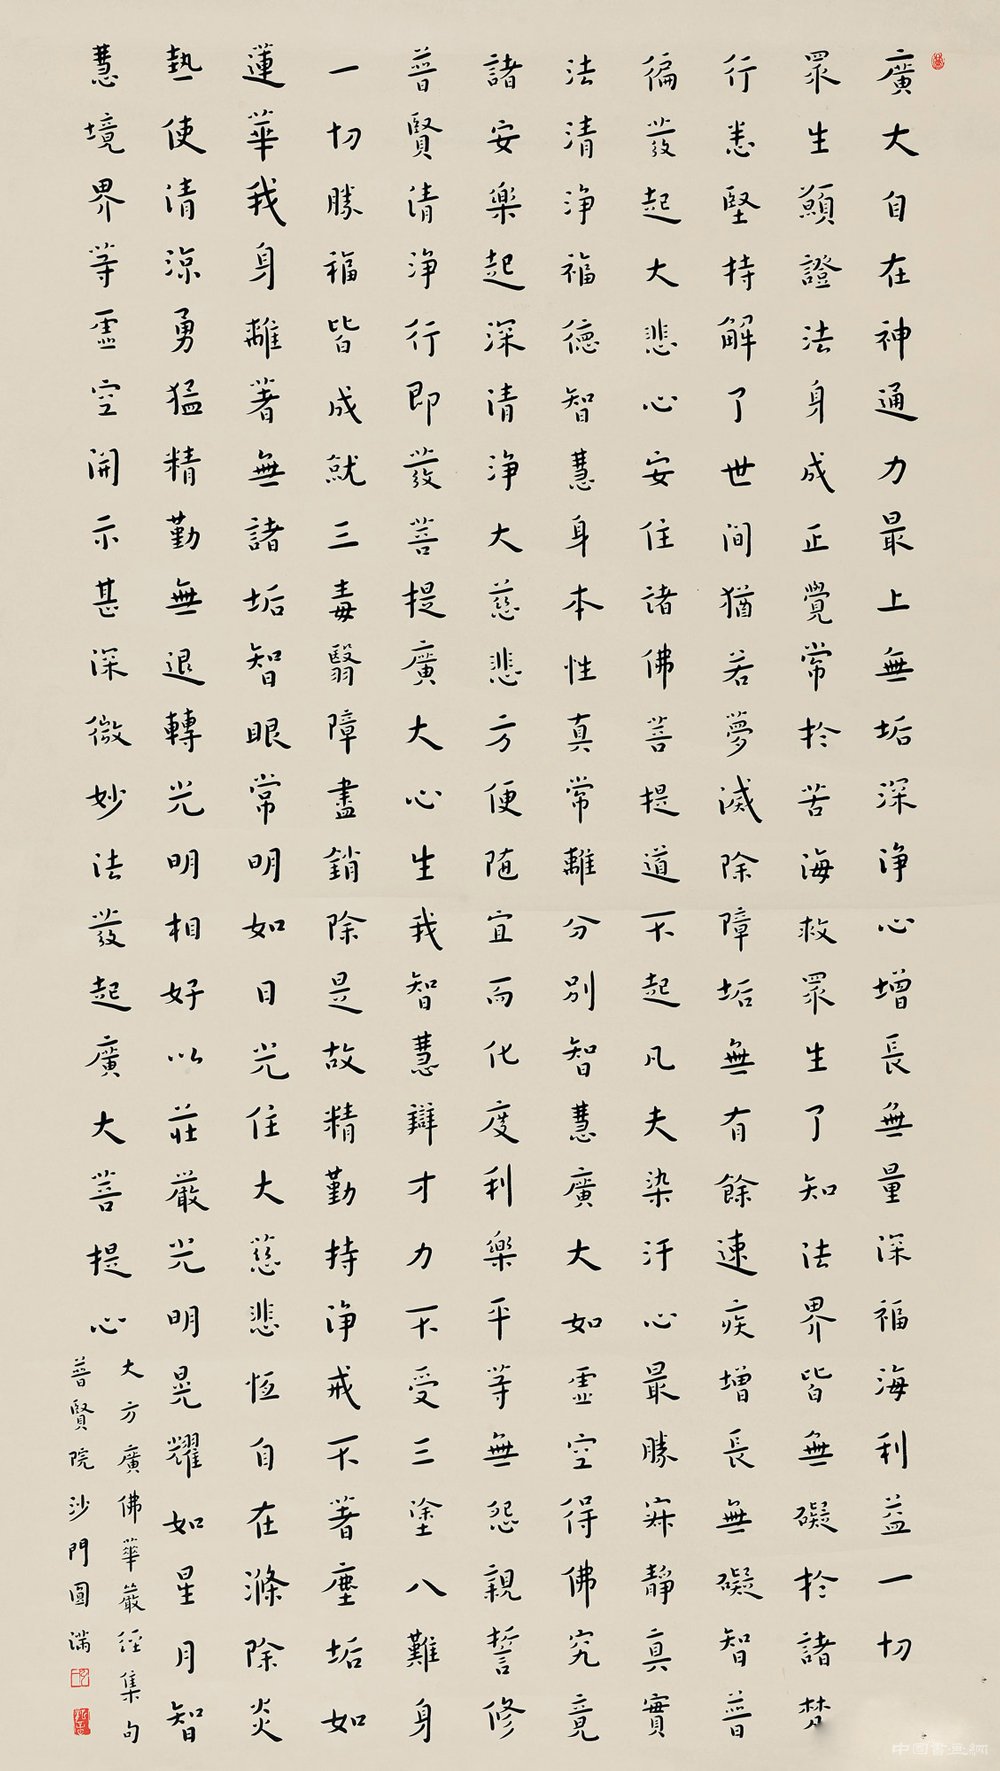 廣大自在神通力最上無垢深淨心增長無量深福海利益一切
眾生願證法身成正覺常於苦海救眾生了知法界皆無礙於諸梵
行悉堅持解了世間猶若夢滅除障垢無有餘速疾增長無礙智普
徧發起大悲心安住諸佛菩提道不起凡夫染汙心最勝寂靜真實
法清淨福德智慧身本性真常離分別智慧廣大如虛空得佛究竟
諸安樂起深清淨大慈悲方便隨宜而化度利樂平等無怨親誓修
普賢清淨行即發菩提廣大心生我智慧辯才力不受三塗八難身
一切勝福皆成就三毒翳障盡銷除是故精勤持淨戒不著塵垢如
蓮華我身離著無諸垢智眼常明如日光住大慈悲恆自在滌除炎
熱使清涼勇猛精勤無退轉光明相好以莊嚴光明晃耀如星月智
慧境界等虛空開示甚深微妙法發起廣大菩提心
大方廣佛華嚴經集句
普賢院沙門圓滿
中國書畫網